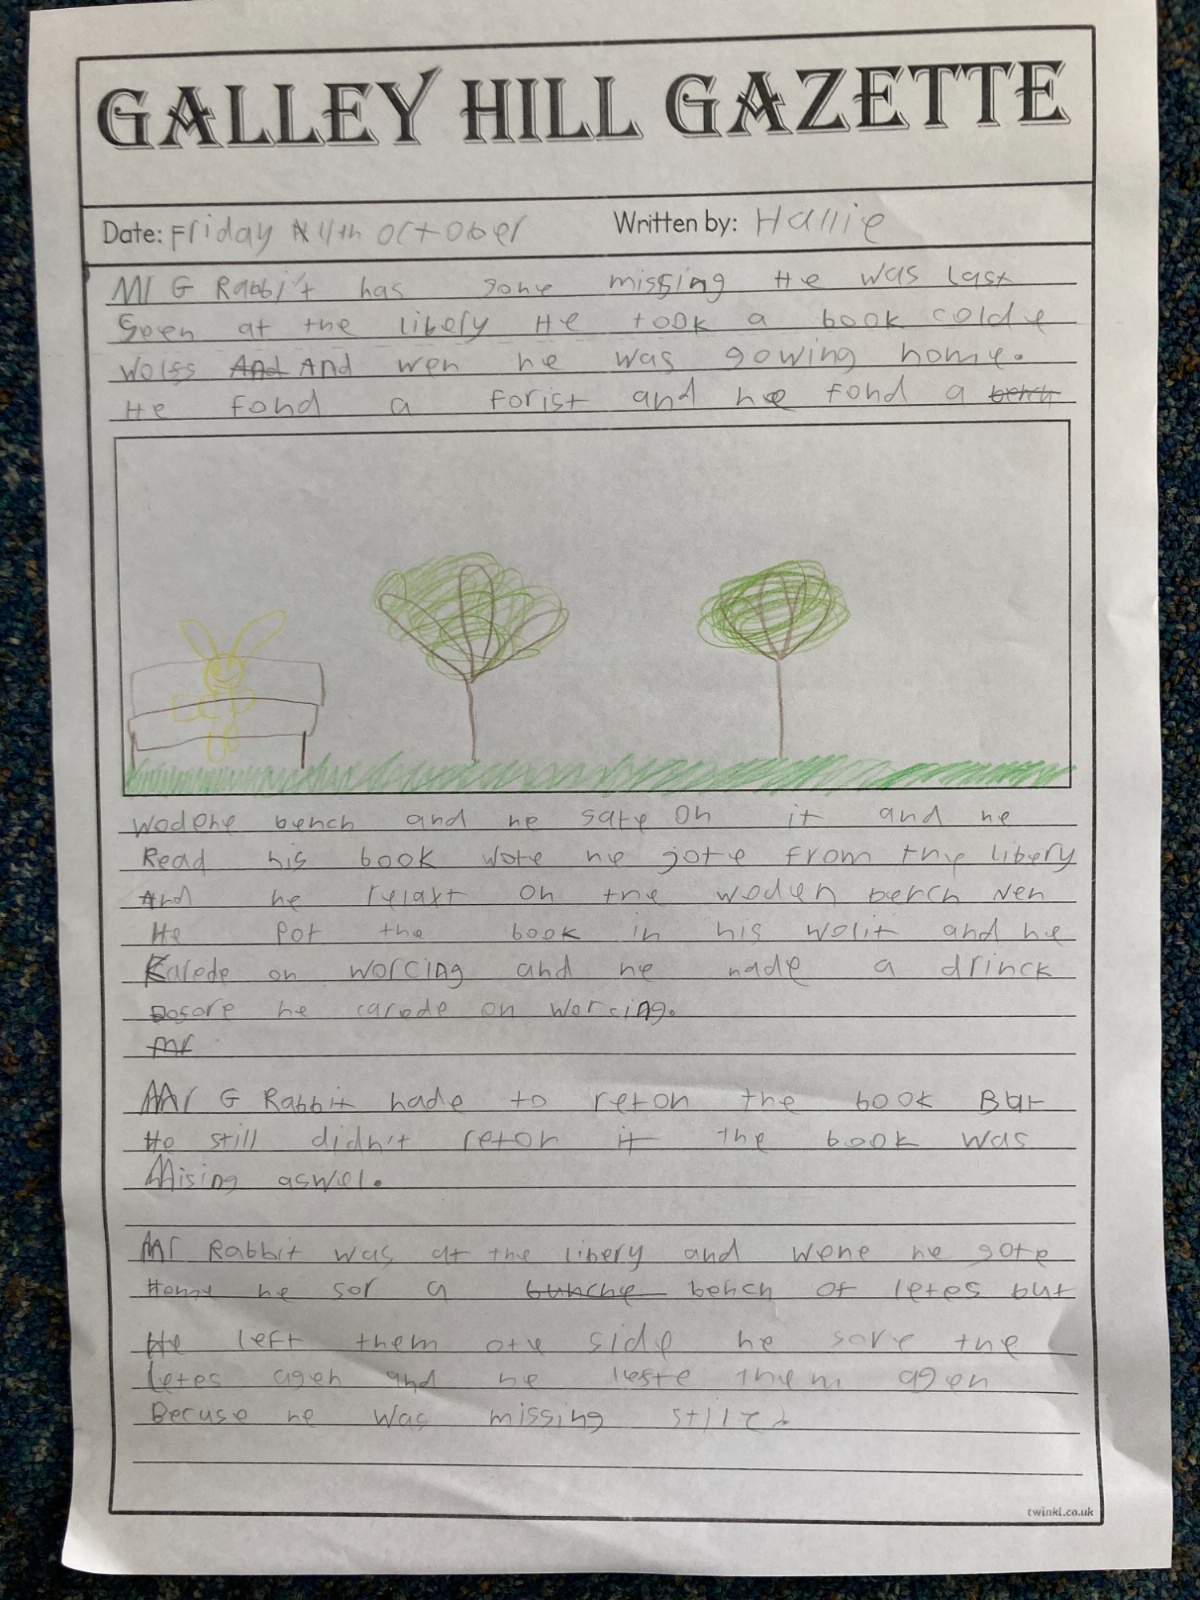 GALLEY HILL GAZETTE
Date: Friday 11th October Written by: Hallie
Mr G Rabbit has gone missing He was last
Seen at the libery He took a book colde
Wolfs And And wen he was gowing home.
He fond a forist and he fond a bench
Wodene bench and he sate on it and he
Read his book wote he gote from the libery
And he relaxt on the woden bench Wen
He pot the book in his wolit and he
Karede on worcing and he made a drinck
Bofore he carede on worcing.
Mr
Mr G Rabbit hade to reton the book But
He still didn't reton it the book was
Mising aswel.
Mr Rabbit was at the libery and wene he gote
Home he sor a bunche bench of letes but
He left them ote side he sore the
Letes agen and he lefte them agen
Becuse he was missing still
twinkl.co.uk